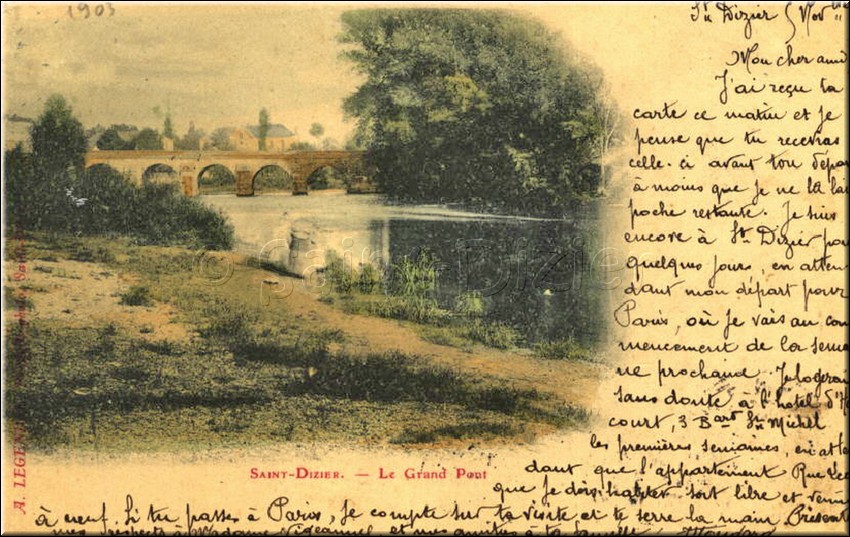 1903
St Dizier 5 Nov
Mon cher ami
J'ai reçu ta
carte ce matin et je
pense que tu recevras
celle-ci avant ton dépa
à moins que je ne la lai
poche restante. Je suis
encore à St Dizier pou
quelques jours, en atten
dant mon départ pour
Paris, où je vais au com
mencement de la semai
ne prochaine. Je logerai
sans doute à l'hotel d'H
court, 3 Bard St Michel
les premières semaines, en atte
dant que l'appartement Rue
que je dois habiter soit libre et
à neuf. Si tu passes à Paris, je compte sur ta visite et te serre la main. Présente
mes respects à Madame et mes amitiés à ta famille
SAINT-DIZIER. — Le Grand Pont
© Saint-Dizie
A. LEGE